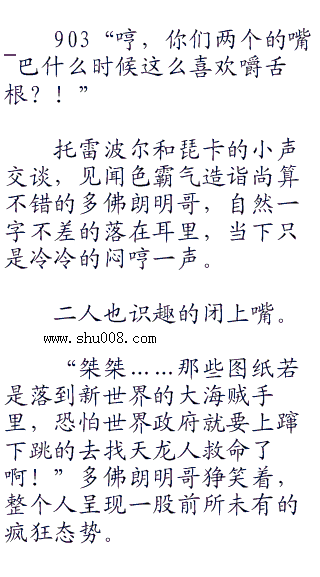 903“哼，你们两个的嘴
巴什么时候这么喜欢嚼舌
根？！”
托雷波尔和琵卡的小声
交谈，见闻色霸气造诣尚算
不错的多佛朗明哥，自然一
字不差的落在耳里，当下只
是冷冷的闷哼一声。
二人也识趣的闭上嘴。
www.shu008.com
“桀桀……那些图纸若
是落到新世界的大海贼手
里，恐怕世界政府就要上蹿
下跳的去找天龙人救命了
啊！”多佛朗明哥狰笑着，
整个人呈现一股前所未有的
疯狂态势。